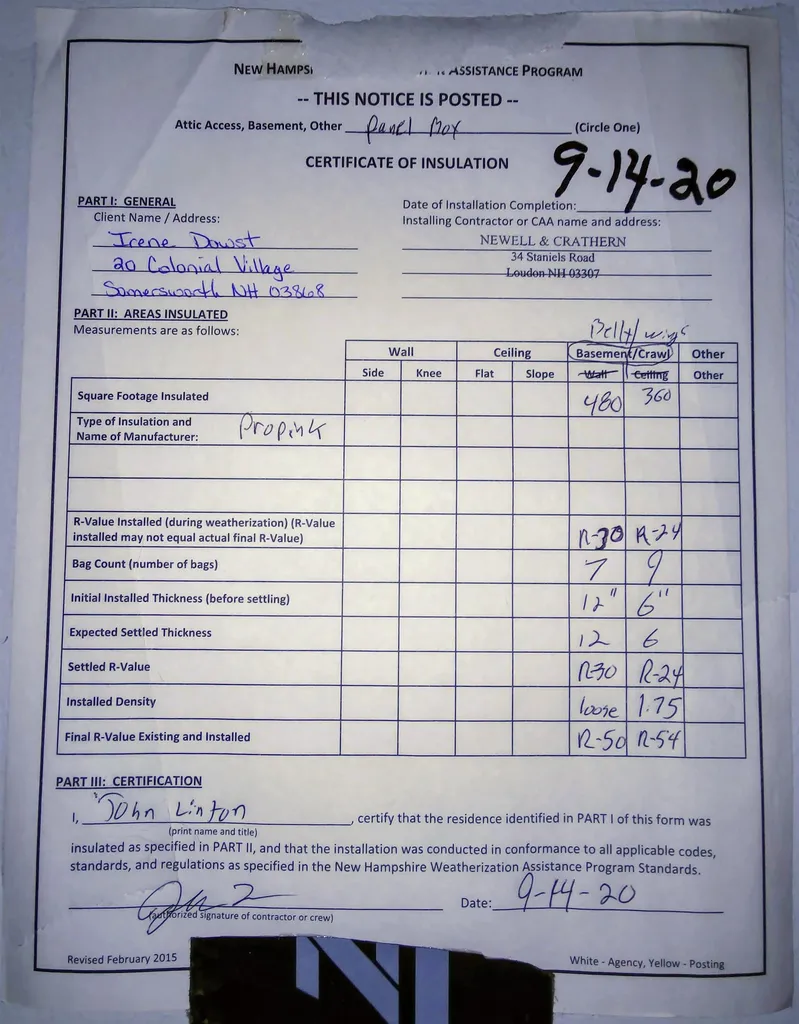 NEW HAMPS ASSISTANCE PROGRAM
-- THIS NOTICE IS POSTED --
Attic Access, Basement, Other Panel Box (Circle One)
CERTIFICATE OF INSULATION
9-14-20
PART I: GENERAL
Client Name / Address:
Irene Dowst
20 Colonial Village
Somersworth NH 03868
Date of Installation Completion:
Installing Contractor or CAA name and address:
NEWELL & CRATHERN
34 Staniels Road
Loudon NH 03307
PART II: AREAS INSULATED
Measurements are as follows:
Belly/wings
Wall Ceiling Basement/Crawl Other
Side Knee Flat Slope Wall Ceiling Other
Square Footage Insulated 480 360
Type of Insulation and
Name of Manufacturer: Propink
R-Value Installed (during weatherization) (R-Value
installed may not equal actual final R-Value) R-30 R-24
Bag Count (number of bags) 7 9
Initial Installed Thickness (before settling) 12" 6"
Expected Settled Thickness 12 6
Settled R-Value R-30 R-24
Installed Density loose 1.75
Final R-Value Existing and Installed R-50 R-54
PART III: CERTIFICATION
I, John Linton, certify that the residence identified in PART I of this form was
(print name and title)
insulated as specified in PART II, and that the installation was conducted in conformance to all applicable codes,
standards, and regulations as specified in the New Hampshire Weatherization Assistance Program Standards.
Date: 9-14-20
(authorized signature of contractor or crew)
Revised February 2015
White - Agency, Yellow - Posting